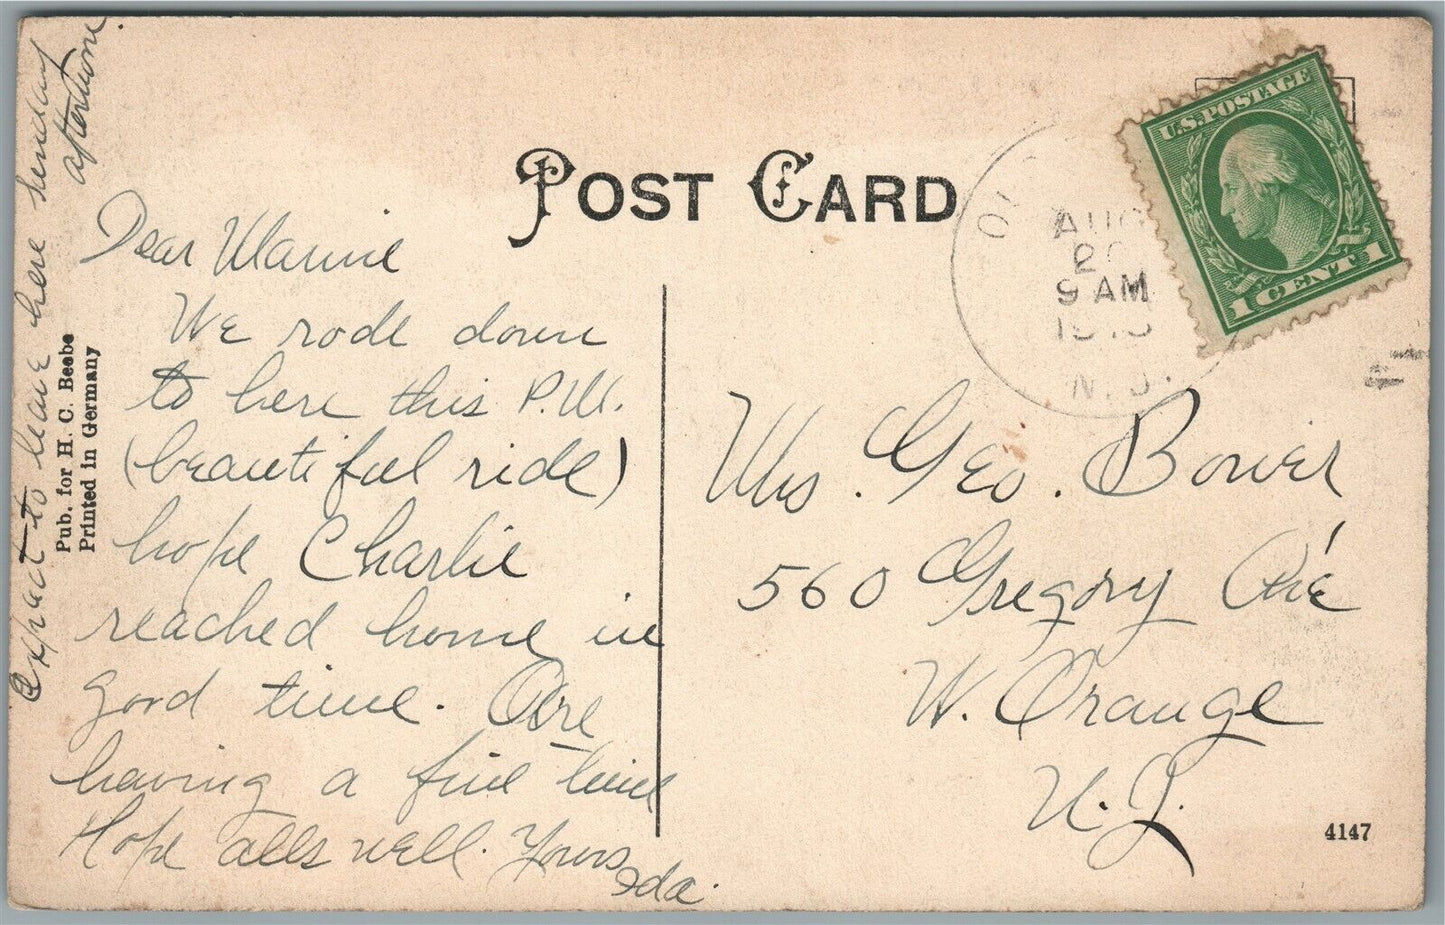 POST CARD
Dear Mamie
We rode down
to here this P.M.
(beautiful ride)
hope Charlie
reached home in
good time. Are
having a fine time
Hope alls well. Yours
Ida.
expect to leave here Sunday
afternoone.
Pub. for H. C. Beebe
Printed in Germany
AUG
9 AM
N.J.
U.S. POSTAGE
1 CENT 1
Mrs. Geo. Bower
560 Gregory Ave
W. Orange
N. J.
4147